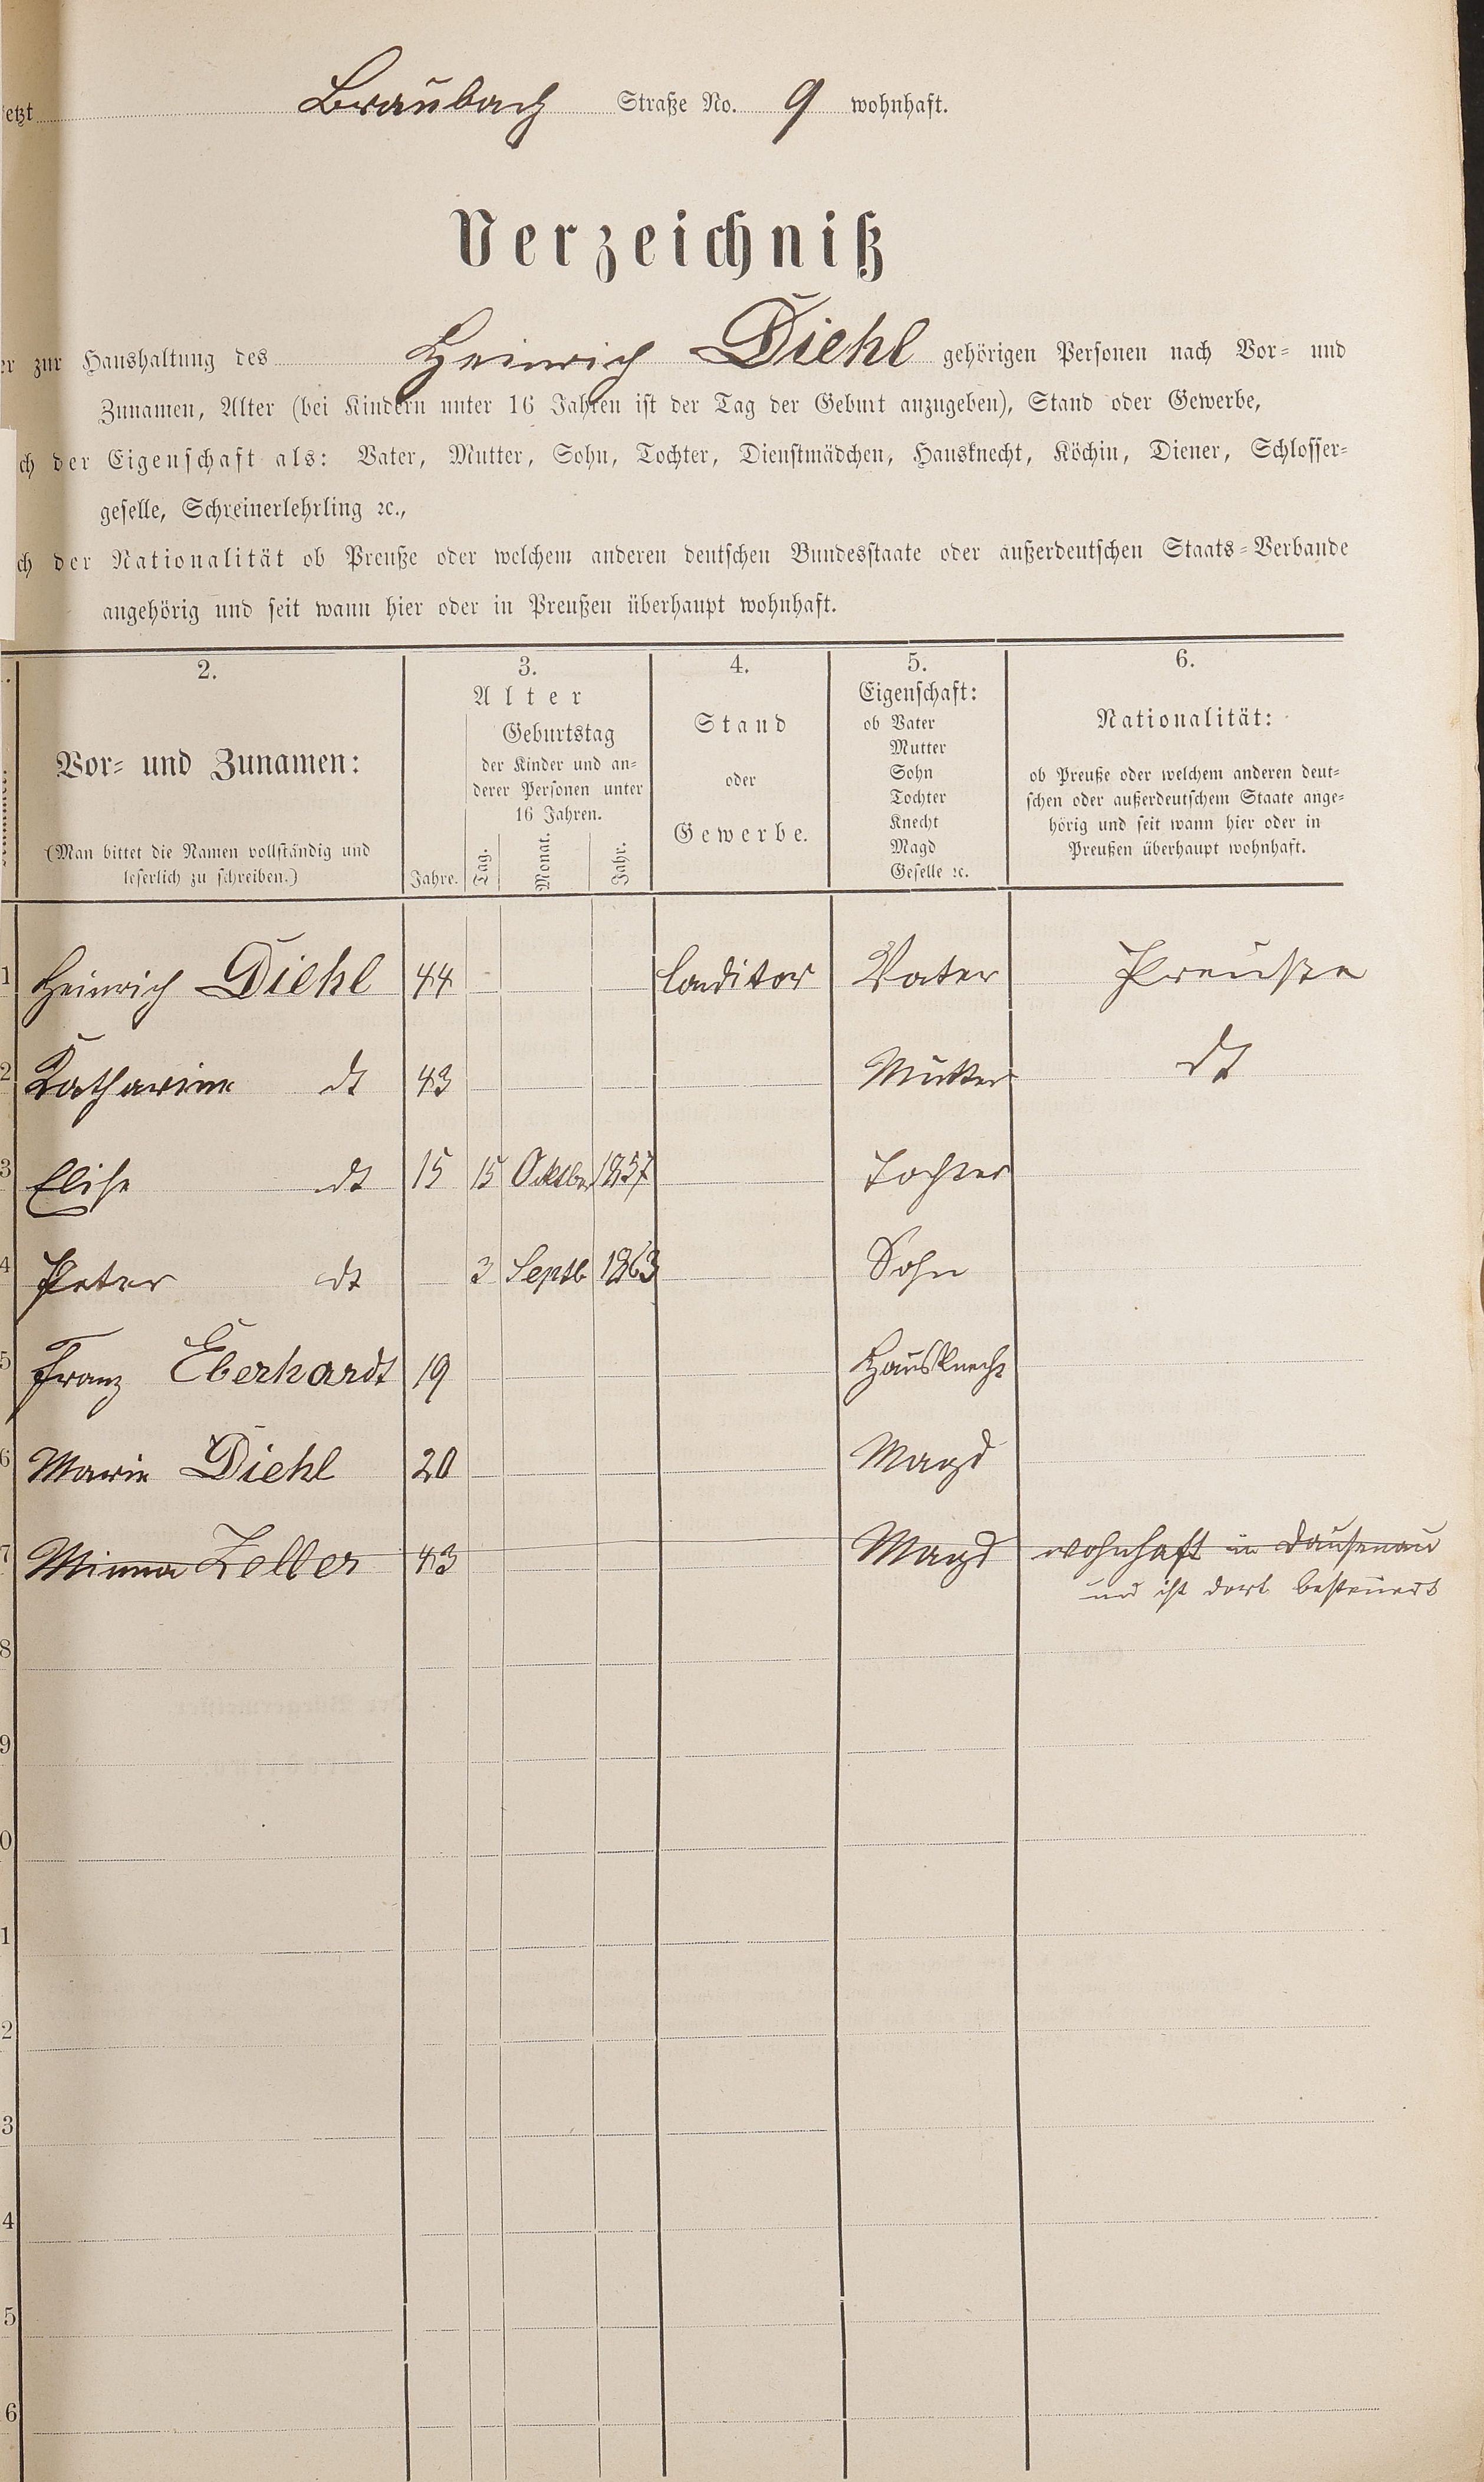 etzt Braubach Straße No. 9 wohnhaft.
Verzeichniß
er zur Haushaltung des Heinrich Diehl gehörigen Personen nach Vor- und
Zunamen, Alter (bei Kindern unter 16 Jahren ist der Tag der Geburt anzugeben), Stand oder Gewerbe,
ch der Eigenschaft als: Vater, Mutter, Sohn, Tochter, Dienstmädchen, Hausknecht, Köchin, Diener, Schlosser-
geselle, Schreinerlehrling ꝛc.,
ch der Nationalität ob Preuße oder welchem anderen deutschen Bundesstaate oder außerdeutschen Staats-Verbande
angehörig und seit wann hier oder in Preußen überhaupt wohnhaft.
2. 3. 4. 5. 6.
Vor- und Zunamen:
(Man bittet die Namen vollständig und
leserlich zu schreiben.)
Alter
Jahre.
Geburtstag
der Kinder und an-
derer Personen unter
16 Jahren.
Tag. Monat. Jahr.
Stand
oder
Gewerbe.
Eigenschaft:
ob Vater
Mutter
Sohn
Tochter
Knecht
Magd
Geselle ꝛc.
Nationalität:
ob Preuße oder welchem anderen deut-
schen oder außerdeutschem Staate ange-
hörig und seit wann hier oder in
Preußen überhaupt wohnhaft.
1 Heinrich Diehl 44 Conditor Vater Preuße
2 Katharine dt 43 Mutter dt
3 Elise dt 15 15 Oktober 1857 Tochter
4 Peter dt 3 Septb 1863 Sohn
5 Franz Eberhardt 19 Hausknecht
6 Marie Diehl 20 Magd
7 Minna Zelber 43 Magd wohnhaft in Dausenau
und ist dort besteuert
8
9
0
1
2
3
4
5
6